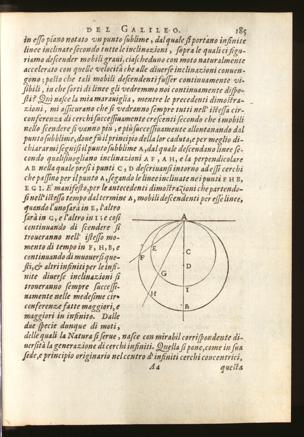 DEL GALILEO. 185
in esso piano notato vn punto sublime, dal quale si portano infinite
linee inclinate secondo tutte le inclinazioni, sopra le quali ci figu-
riamo descender mobili graui, ciascheduno con moto naturalmente
accelerato con quelle velocità che alle diuerse inclinazioni conuen-
gono; posto che tali mobili descendenti fusser continuamente vi-
sibili, in che sorti di linee gli vedremmo noi continuamente dispo-
sti? Qui nasce la mia marauiglia, mentre le precedenti dimostra-
zioni, mi assicurano che si vedranno sempre tutti nell'istessa cir-
conferenza di cerchi successiuamente crescenti secondo che i mobili
nello scendere si vanno più, e più successiuamente allontanando dal
punto sublime, doue fù il principio della lor caduta, e per meglio di-
chiararmi segnisi il punto sublime A, dal quale descendano linee se-
condo qualsiuogliano inclinazioni A F, A H, e la perpendicolare
A B nella quale presi i punti C, D descriuansi intorno ad essi cerchi
che passino per il punto A, segando le linee inclinate nei punti F H B,
E G I. E' manifesto, per le antecedenti dimostrazioni che partendo-
si nell'istesso tempo dal termine A, mobili descendenti per esse linee,
quando l'uno sarà in E, l'altro
sarà in G, e l'altro in I; e così
continuando di scendere si
troueranno nell'istesso mo-
mento di tempo in F, H, B, e
continuando di muouersi que-
sti, & altri infiniti per le infi-
nite diuerse inclinazioni si
troueranno sempre successi-
uamente nelle medesime cir-
conferenze fatte maggiori, e
maggiori in infinito. Dalle
due specie dunque di moti,
delle quali la Natura si serue, nasce con mirabil corrispondente di-
uersità la generazione di cerchi infiniti. Quella si pone, come in sua
sede, e principio originario nel centro d'infiniti cerchi concentrici,
Aa questa
A
E
C
F
D
G
I
H
B